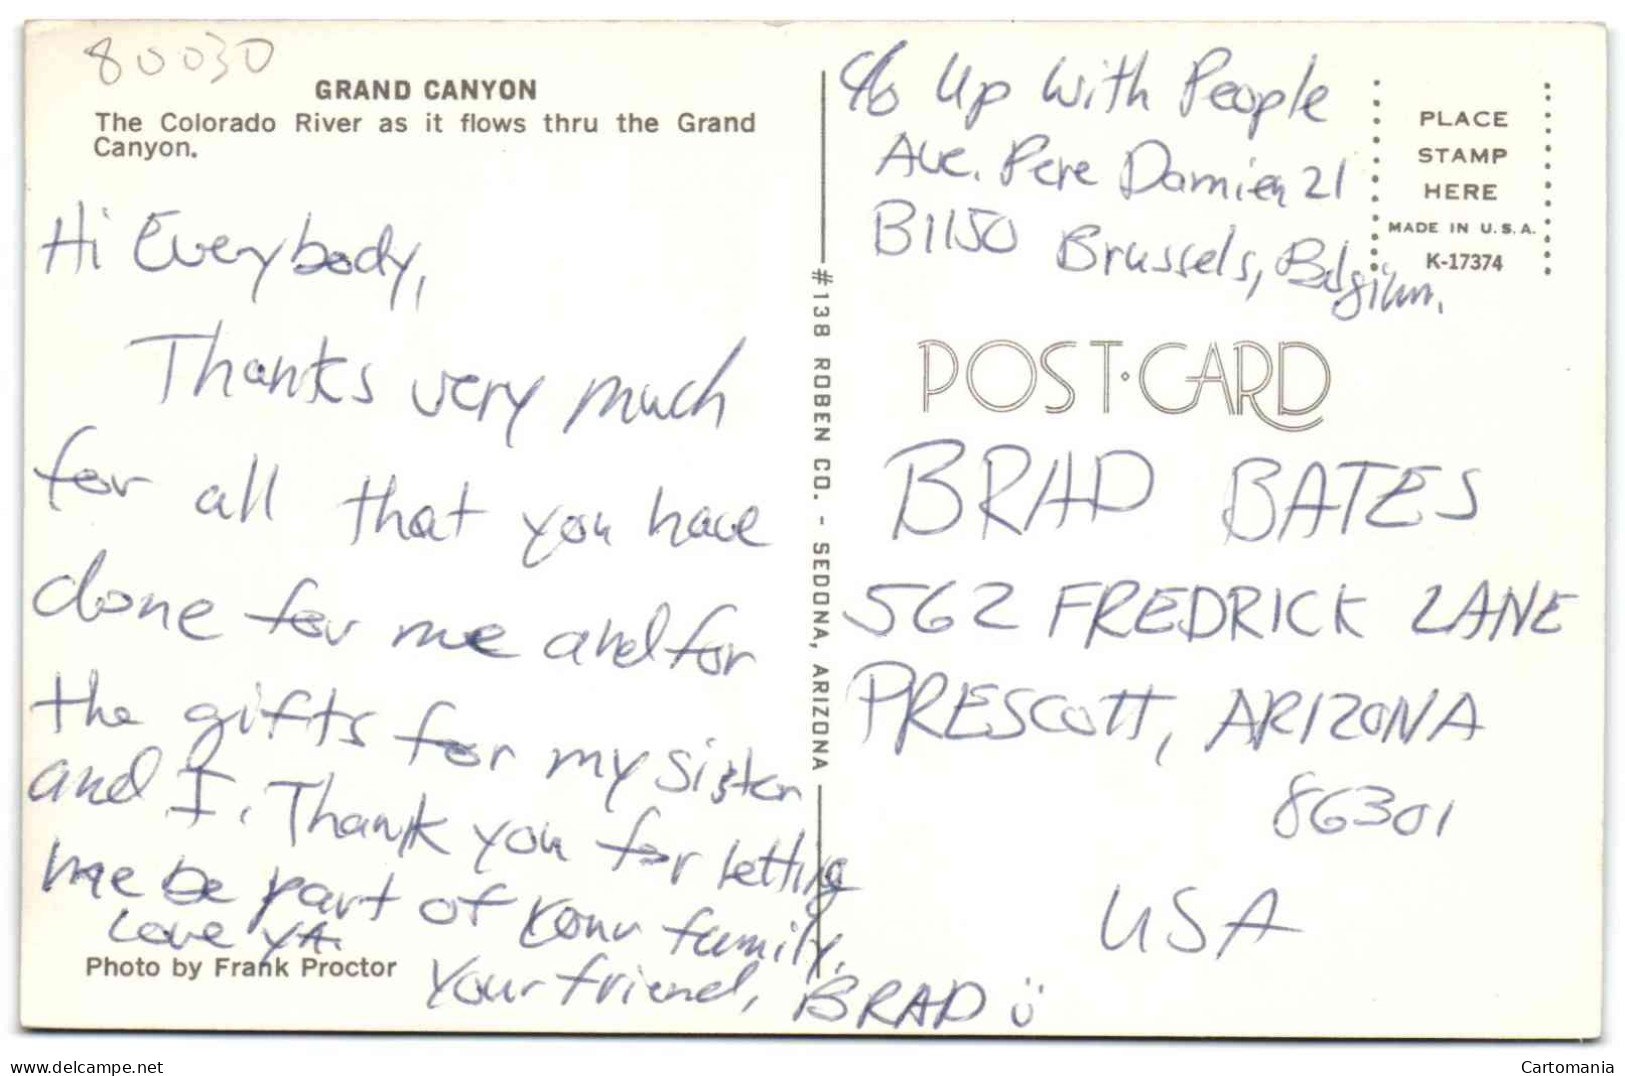 80030
GRAND CANYON
The Colorado River as it flows thru the Grand
Canyon.
Hi Everybody,
Thanks very much
for all that you have
done for me and for
the gifts for my sister
and I. Thank you for letting
me be part of your family.
Love YA.
Your friend, BRAD
Photo by Frank Proctor
#138 ROBEN CO. - SEDONA, ARIZONA
c/o Up With People
Ave. Pere Damien 21
B1150 Brussels, Belgium.
PLACE
STAMP
HERE
MADE IN U.S.A.
K-17374
POST·CARD
BRAD BATES
562 FREDRICK LANE
PRESCOTT, ARIZONA
86301
USA
Cartomania